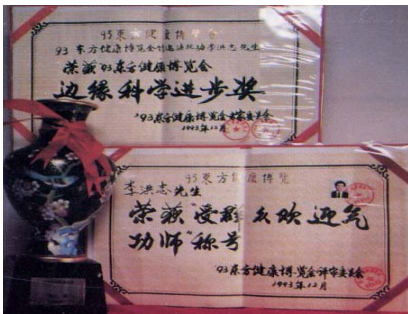 93東方健康博覽會
93东方健康博览会 李洪志先生
荣获'93东方健康博览会
边缘科学进步奖
'93东方健康博览会评审委员会
1993年12月
93東方健康博覽
李洪志先生
荣获"受 众欢迎气
功师"称号
'93东方健康博览会评审委员会
1993年12月